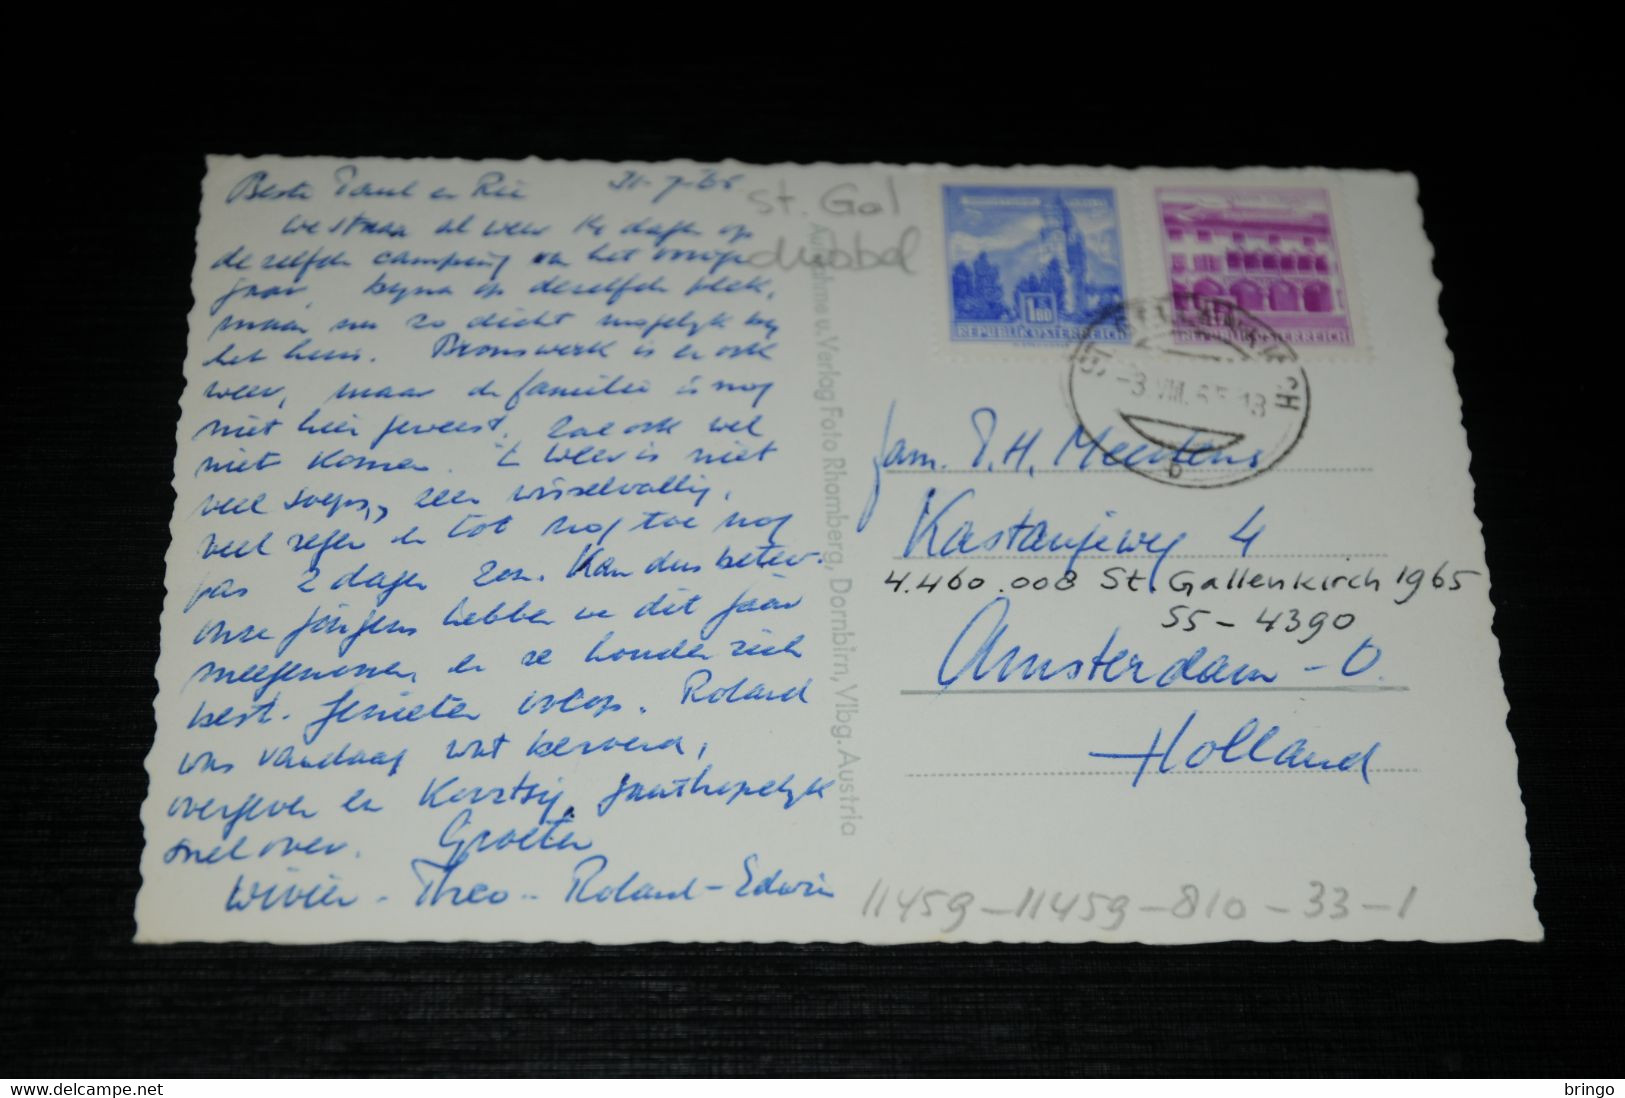 Beste Paul en Rie 31-7-65
We staan al weer 14 dagen op
dezelfde camping van het vorige
jaar, bijna op dezelfde plek,
maar nu zo dicht mogelijk bij
het huis. Bronswerk is er ook
weer, maar de familie is nog
niet hier geweest. Zal ook wel
niet komen. 't Weer is niet
veel soeps, zeer wisselvallig,
veel regen en tot nog toe nog
pas 2 dagen zon. Kan dus beter.
Onze jongens hebben we dit jaar
meegenomen en ze houden zich
best. Genieten volop. Roland
was vandaag wat beroerd,
overgeven en koortsig, jaarthopelijk
snel over. Groeten
Wivier - Theo - Roland - Edwin
St. Gal
dubbel
Aufnahme u. Verlag Foto Rhomberg, Dornbirn, Vlbg. Austria
1.80
REPUBLIK ÖSTERREICH
REPUBLIK ÖSTERREICH
ST. GALLENKIRCH
-3.VIII.65 18
b
fam. P.H. Meertens
Kastanjeweg 4
4.460.008 St. Gallenkirch 1965
SS-4390
Amsterdam-O.
Holland
11459-11459-810-33-1
delcampe.net
bringo